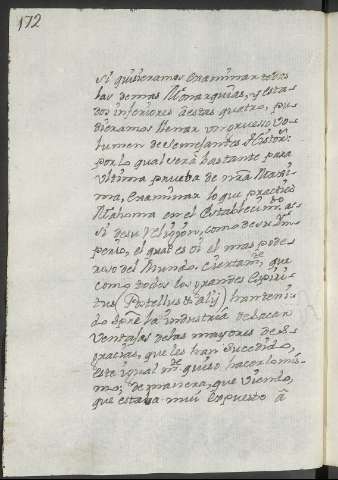 172
si quisieramos examinar todas
las demas Monarquias, y esta-
dos inferiores a estas quatro, pu-
dieramos llenar un grueso Vo-
lumen de semejantes Histor.s
por lo qual será bastante para
ultima prueba de nrã Maxi-
ma, examinar lo que practicò
Mahoma en el Establecim.to as-
si de su Religion, como de su Im-
perio, el qual es oi el mas pode-
roso del Mundo, Ciertam.te que
como todos los grandes Espiri-
tus (Postellus & alij) han teni-
do spre la industria de sacar
ventajas de las mayores des-
gracias, que les han sucedido,
este igual m.te quiso hacer lo mis-
mo; de manera, que viendo,
que estava mui expuesto â